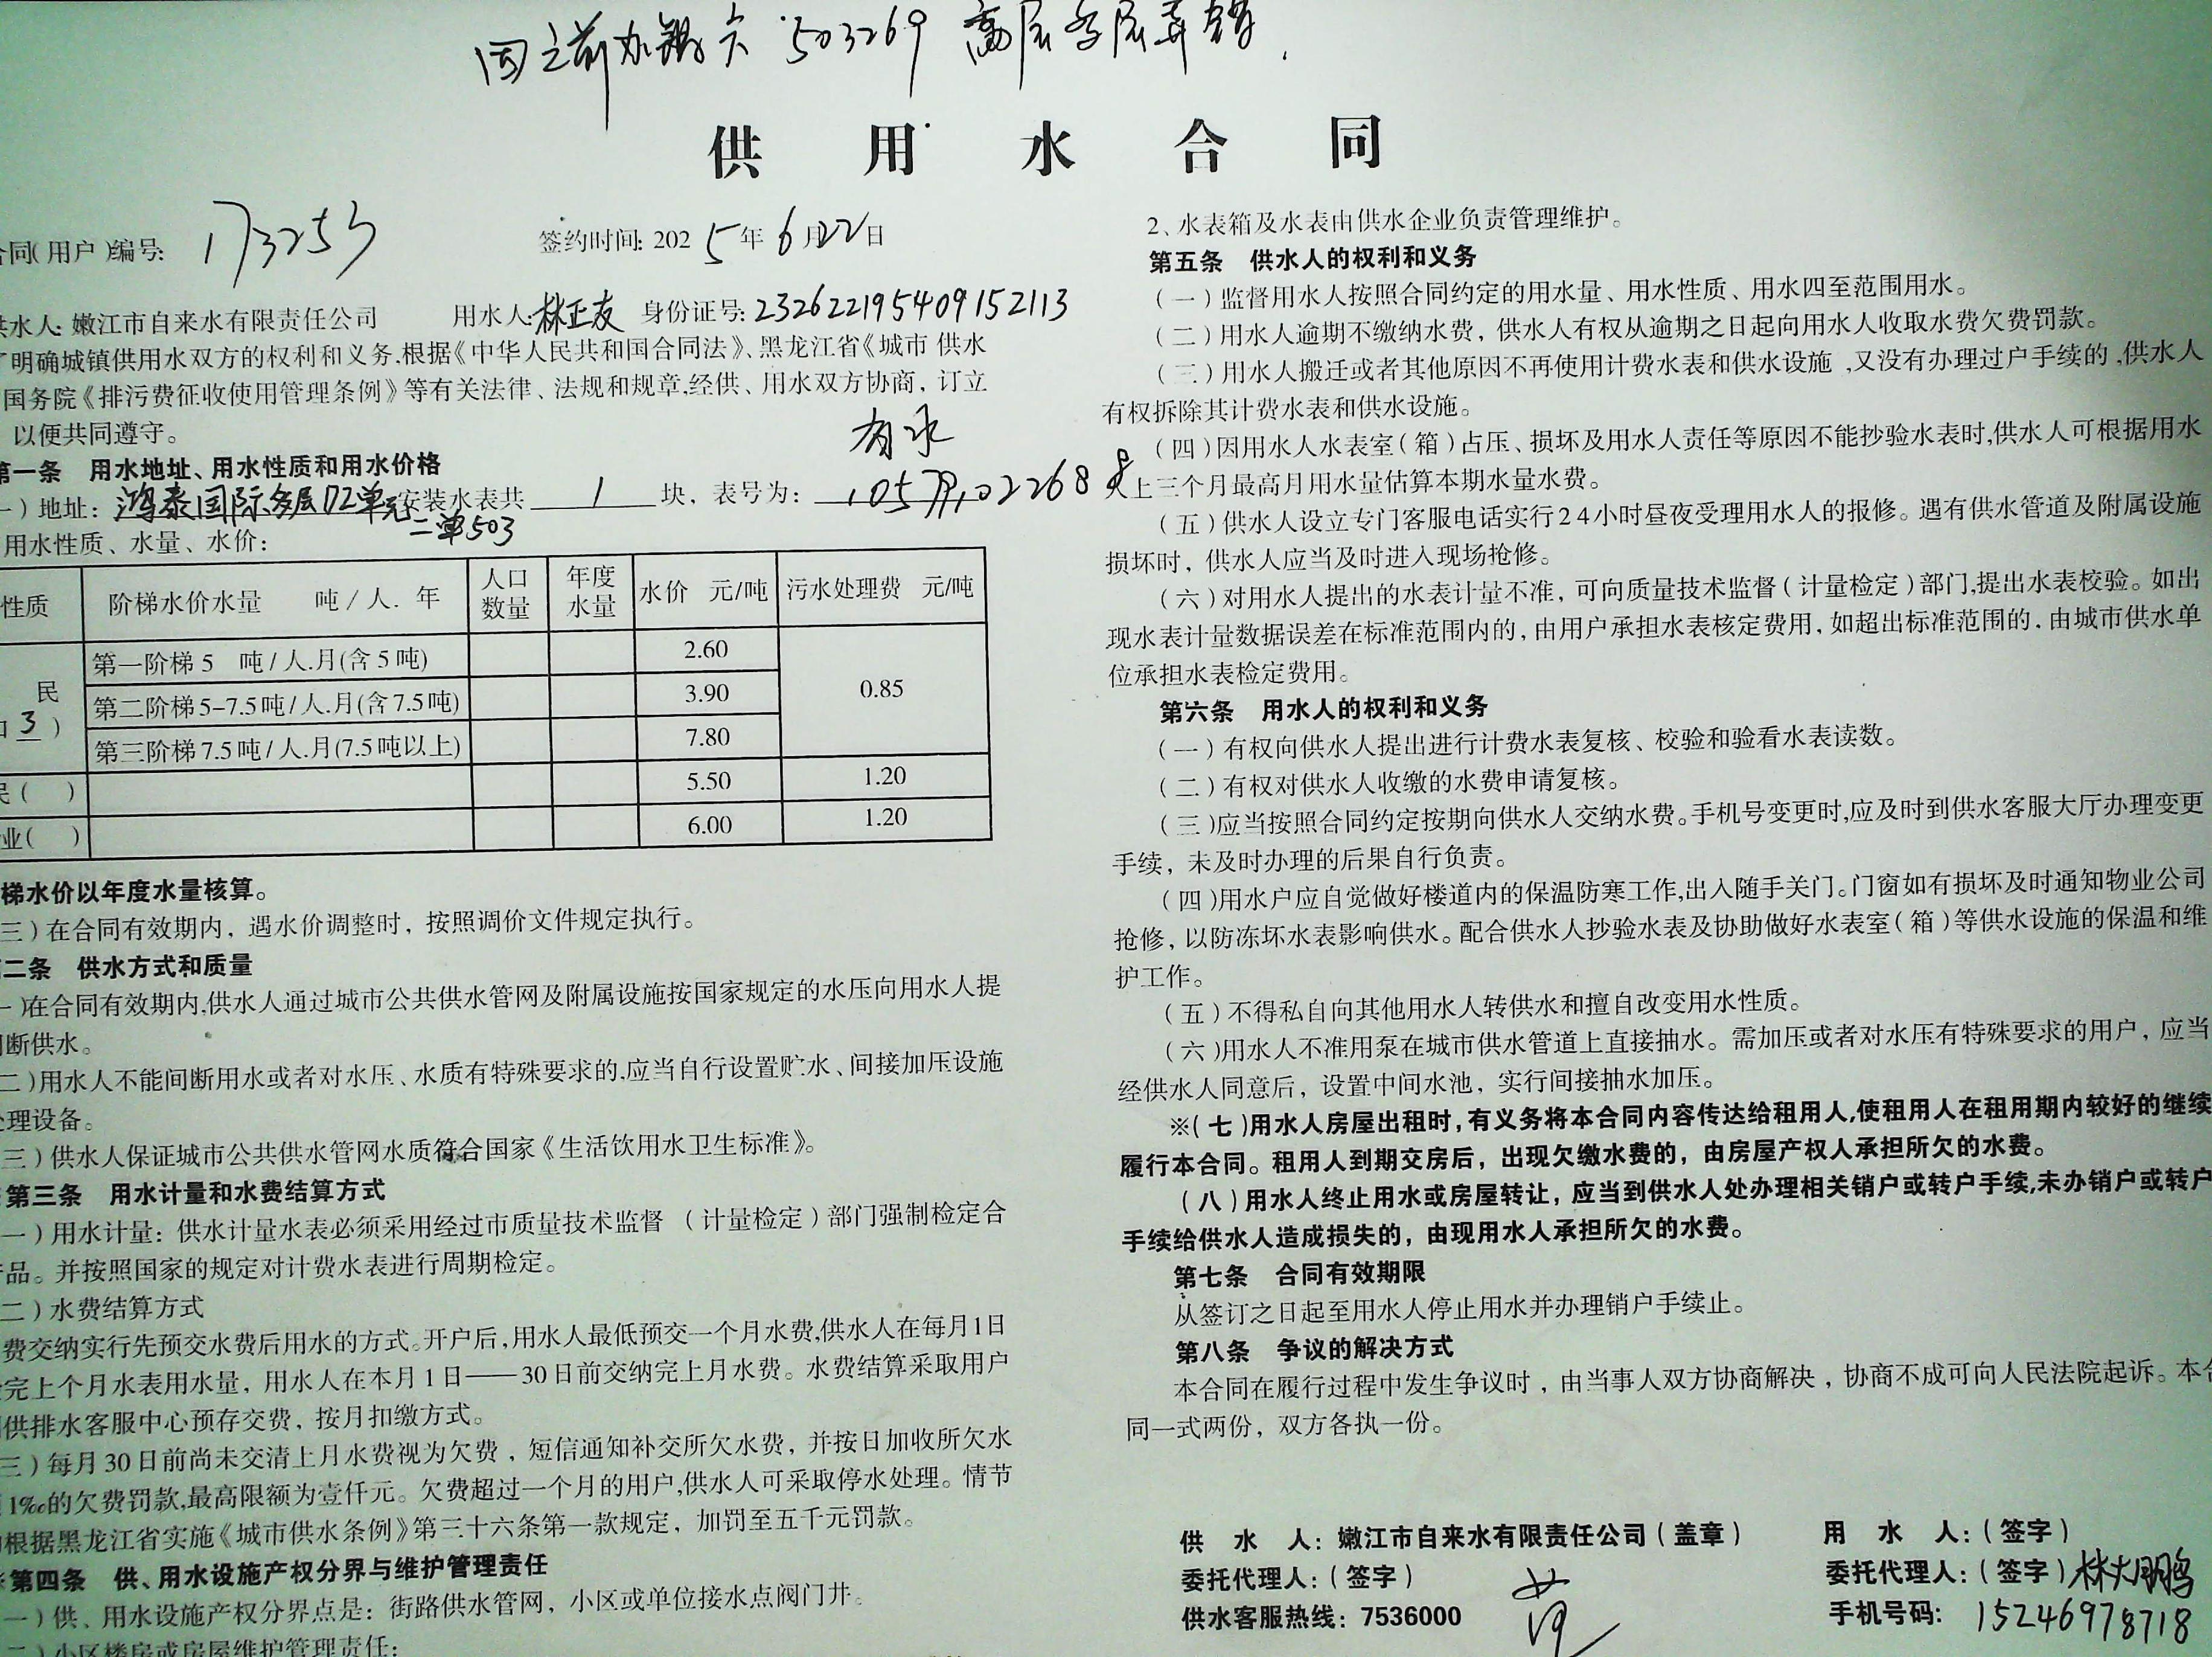 因之前办錯户503269高层多层弄错.
供用水合同
合同(用户)编号: 173253
签约时间: 2025年6月22日
供水人: 嫩江市自来水有限责任公司 用水人: 林正友 身份证号: 232622195409152113
了明确城镇供用水双方的权利和义务,根据《中华人民共和国合同法》、黑龙江省《城市 供水
国务院《排污费征收使用管理条例》等有关法律、法规和规章,经供、用水双方协商, 订立
以便共同遵守。
有水
第一条 用水地址、用水性质和用水价格
一)地址: 鸿泰国际多层 安装水表共 1 块, 表号为:
二单503
用水性质、水量、水价:
性质 阶梯水价水量 吨/人. 年 人口数量 年度水量 水价 元/吨 污水处理费 元/吨
民
3 )
第一阶梯 5 吨/人.月(含5吨) 2.60
第二阶梯 5-7.5吨/人.月(含7.5吨) 3.90 0.85
第三阶梯 7.5吨/人.月(7.5吨以上) 7.80
民( ) 5.50 1.20
业( ) 6.00 1.20
梯水价以年度水量核算。
三)在合同有效期内, 遇水价调整时, 按照调价文件规定执行。
二条 供水方式和质量
一)在合同有效期内,供水人通过城市公共供水管网及附属设施按国家规定的水压向用水人提
断供水。
二)用水人不能间断用水或者对水压、水质有特殊要求的,应当自行设置贮水、间接加压设施
处理设备。
三)供水人保证城市公共供水管网水质符合国家《生活饮用水卫生标准》。
第三条 用水计量和水费结算方式
一)用水计量: 供水计量水表必须采用经过市质量技术监督 (计量检定)部门强制检定合
品。并按照国家的规定对计费水表进行周期检定。
二)水费结算方式
费交纳实行先预交水费后用水的方式。开户后,用水人最低预交一个月水费,供水人在每月1日
完上个月水表用水量, 用水人在本月1日——30日前交纳完上月水费。水费结算采取用户
供排水客服中心预存交费, 按月扣缴方式。
三)每月30日前尚未交清上月水费视为欠费, 短信通知补交所欠水费, 并按日加收所欠水
1‰的欠费罚款,最高限额为壹仟元。欠费超过一个月的用户,供水人可采取停水处理。情节
根据黑龙江省实施《城市供水条例》第三十六条第一款规定, 加罚至五千元罚款。
第四条 供、用水设施产权分界与维护管理责任
一)供、用水设施产权分界点是: 街路供水管网, 小区或单位接水点阀门井。
二)小区楼房或房屋维护管理责任:
2、水表箱及水表由供水企业负责管理维护。
第五条 供水人的权利和义务
(一)监督用水人按照合同约定的用水量、用水性质、用水四至范围用水。
(二)用水人逾期不缴纳水费, 供水人有权从逾期之日起向用水人收取水费欠费罚款。
(三)用水人搬迁或者其他原因不再使用计费水表和供水设施,又没有办理过户手续的,供水人
有权拆除其计费水表和供水设施。
(四)因用水人水表室(箱)占压、损坏及用水人责任等原因不能抄验水表时,供水人可根据用水
人上三个月最高月用水量估算本期水量水费。
(五)供水人设立专门客服电话实行24小时昼夜受理用水人的报修。遇有供水管道及附属设施
损坏时, 供水人应当及时进入现场抢修。
(六)对用水人提出的水表计量不准, 可向质量技术监督(计量检定)部门,提出水表校验。如出
现水表计量数据误差在标准范围内的, 由用户承担水表核定费用, 如超出标准范围的, 由城市供水单
位承担水表检定费用。
第六条 用水人的权利和义务
(一)有权向供水人提出进行计费水表复核、校验和验看水表读数。
(二)有权对供水人收缴的水费申请复核。
(三)应当按照合同约定按期向供水人交纳水费。手机号变更时,应及时到供水客服大厅办理变更
手续, 未及时办理的后果自行负责。
(四)用水户应自觉做好楼道内的保温防寒工作,出入随手关门。门窗如有损坏及时通知物业公司
抢修, 以防冻坏水表影响供水。配合供水人抄验水表及协助做好水表室(箱)等供水设施的保温和维
护工作。
(五)不得私自向其他用水人转供水和擅自改变用水性质。
(六)用水人不准用泵在城市供水管道上直接抽水。需加压或者对水压有特殊要求的用户, 应当
经供水人同意后, 设置中间水池, 实行间接抽水加压。
※(七)用水人房屋出租时, 有义务将本合同内容传达给租用人,使租用人在租用期内较好的继续
履行本合同。租用人到期交房后, 出现欠缴水费的, 由房屋产权人承担所欠的水费。
(八)用水人终止用水或房屋转让, 应当到供水人处办理相关销户或转户手续,未办销户或转户
手续给供水人造成损失的, 由现用水人承担所欠的水费。
第七条 合同有效期限
从签订之日起至用水人停止用水并办理销户手续止。
第八条 争议的解决方式
本合同在履行过程中发生争议时, 由当事人双方协商解决, 协商不成可向人民法院起诉。本合
同一式两份, 双方各执一份。
供 水 人: 嫩江市自来水有限责任公司(盖章) 用 水 人: (签字)
委托代理人: (签字) 委托代理人: (签字) 林大鹏
供水客服热线: 7536000 手机号码: 15246978718